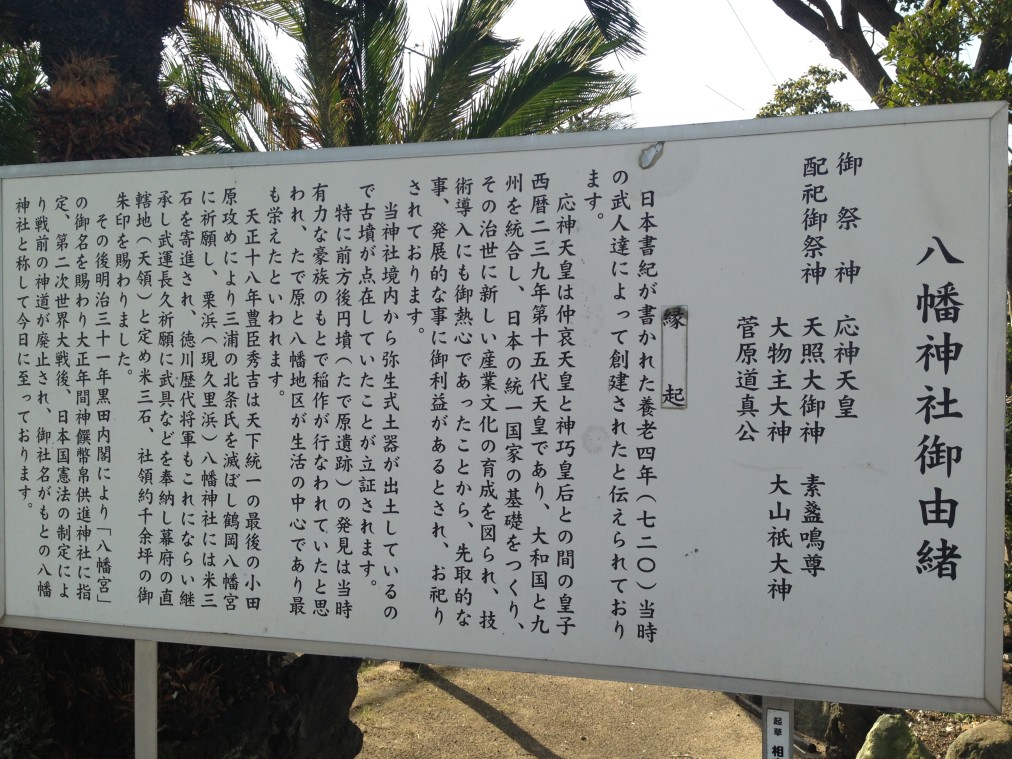 八幡神社御由緒
御祭神　応神天皇
配祀御祭神　天照大御神　素盞鳴尊
大物主大神　大山祇大神
菅原道真公
縁起
日本書紀が書かれた養老四年（七二〇）当時
の武人達によって創建されたと伝えられており
ます。
応神天皇は仲哀天皇と神巧皇后との間の皇子
西暦二三九年第十五代天皇であり、大和国と九
州を統合し、日本の統一国家の基礎をつくり、
その治世に新しい産業文化の育成を図られ、技
術導入にも御熱心であったことから、先取的な
事、発展的な事に御利益があるとされ、お祀り
されております。
当神社境内から弥生式土器が出土しているの
で古墳が点在していたことが立証されます。
特に前方後円墳（たで原遺跡）の発見は当時
有力な豪族のもとで稲作が行なわれていたと思
われ、たで原と八幡地区が生活の中心であり最
も栄えたといわれます。
天正十八年豊臣秀吉は天下統一の最後の小田
原攻めにより三浦の北条氏を滅ぼし鶴岡八幡宮
に祈願し、栗浜（現久里浜）八幡神社には米三
石を寄進され、徳川歴代将軍もこれにならい継
承し武運長久祈願に武具などを奉納し幕府の直
轄地（天領）と定め米三石、社領約千余坪の御
朱印を賜わりました。
その後明治三十一年黒田内閣により「八幡宮」
の御名を賜わり大正年間神饌幣帛供進神社に指
定、第二次世界大戦後、日本国憲法の制定によ
り戦前の神道が廃止され、御社名がもとの八幡
神社と称して今日に至っております。
起草　相